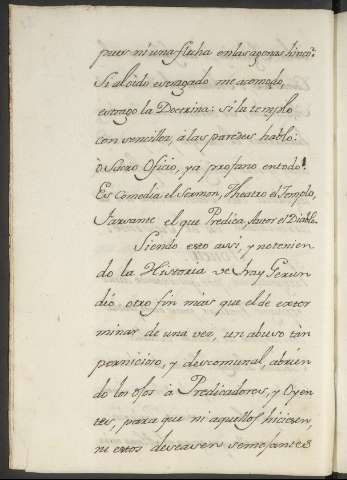 pues ni una flecha en las agenas hinco.
Si al oido estragado me acomodo,
estrago la Doctrina: si la templo
con sencilléz, á las paredes hablo:
ò Sacro Oficio, ya profano en todo!
Es Comedia el Sermon, Theatro el Templo,
Farsante el que Predica, Autor el Diablo.
Siendo esto assi, y no tenien
do la Historia de Fray Gerun
dio otro fin mas que el de exter
minar de una vez, un abuso tàn
pernicioso, y descomunal, abrien
do los ojos à Predicadores, y Oyen
tes, para que ni aquellos hiciesen,
ni estos deseasen semejantes